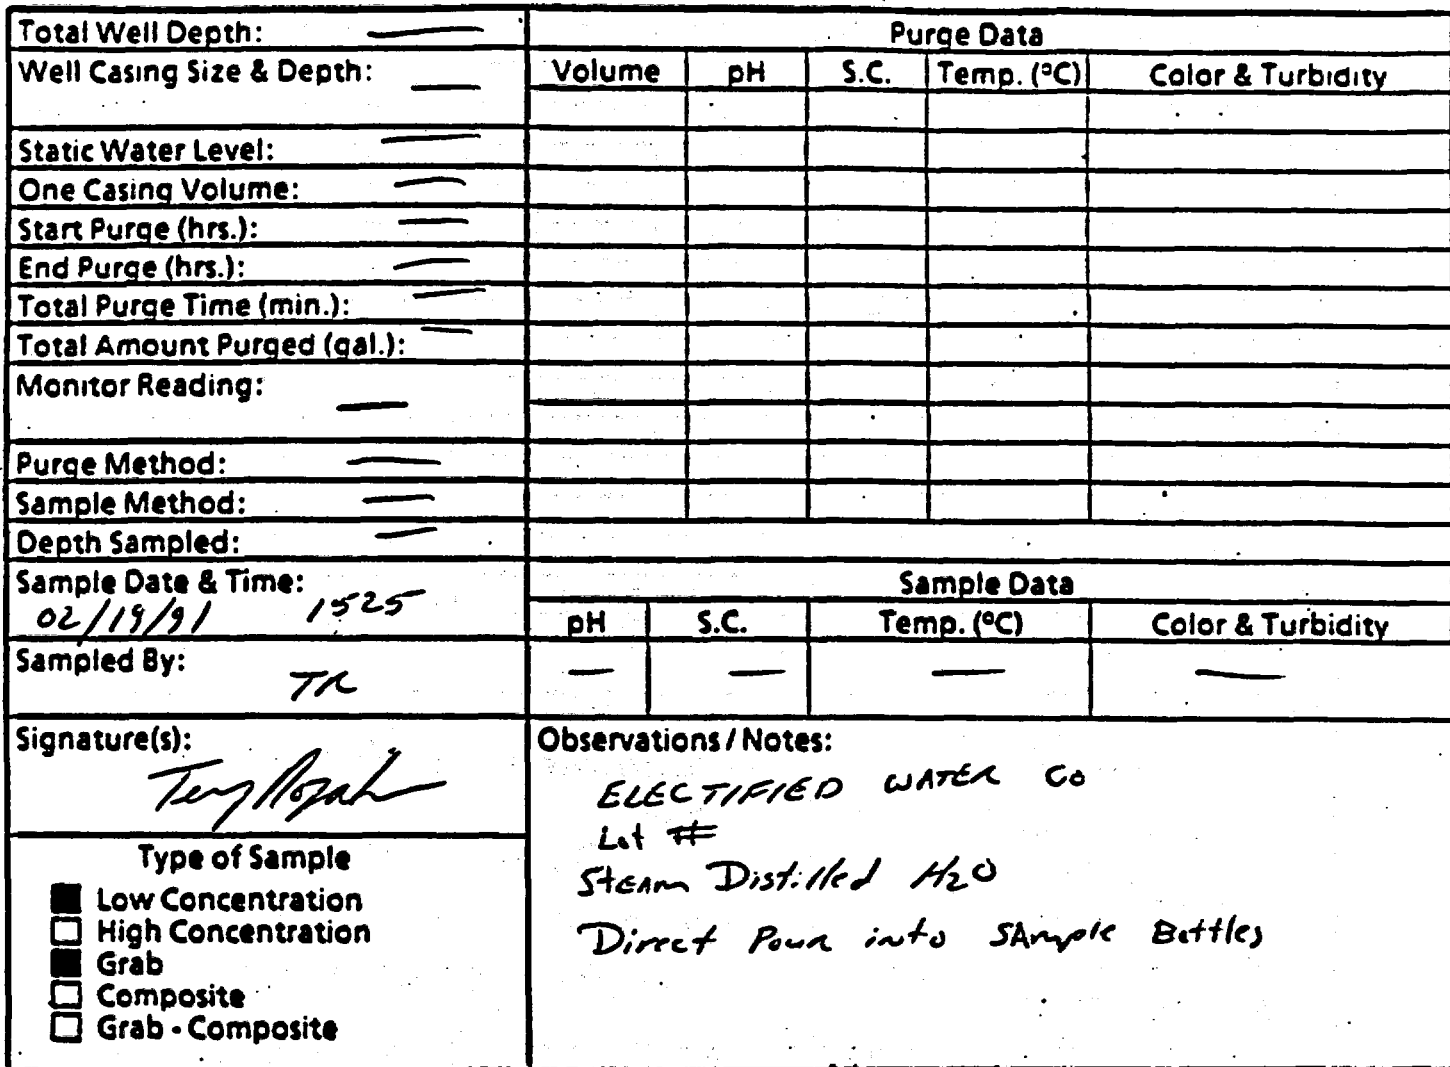 Total Well Depth: —
Well Casing Size & Depth: —
Static Water Level: —
One Casing Volume: —
Start Purge (hrs.): —
End Purge (hrs.): —
Total Purge Time (min.): —
Total Amount Purged (gal.): —
Monitor Reading: —
Purge Method: —
Sample Method: —
Depth Sampled: —
Sample Date & Time:
02/19/91 1525
Sampled By:
TR
Signature(s):
Type of Sample
■ Low Concentration
□ High Concentration
■ Grab
□ Composite
□ Grab - Composite
Purge Data
Volume pH S.C. Temp. (ºC) Color & Turbidity
Sample Data
pH S.C. Temp. (ºC) Color & Turbidity
— — — —
Observations / Notes:
ELECTIFIED WATER Co
Lot #
Steam Distilled H2O
Direct Pour into Sample Bottles